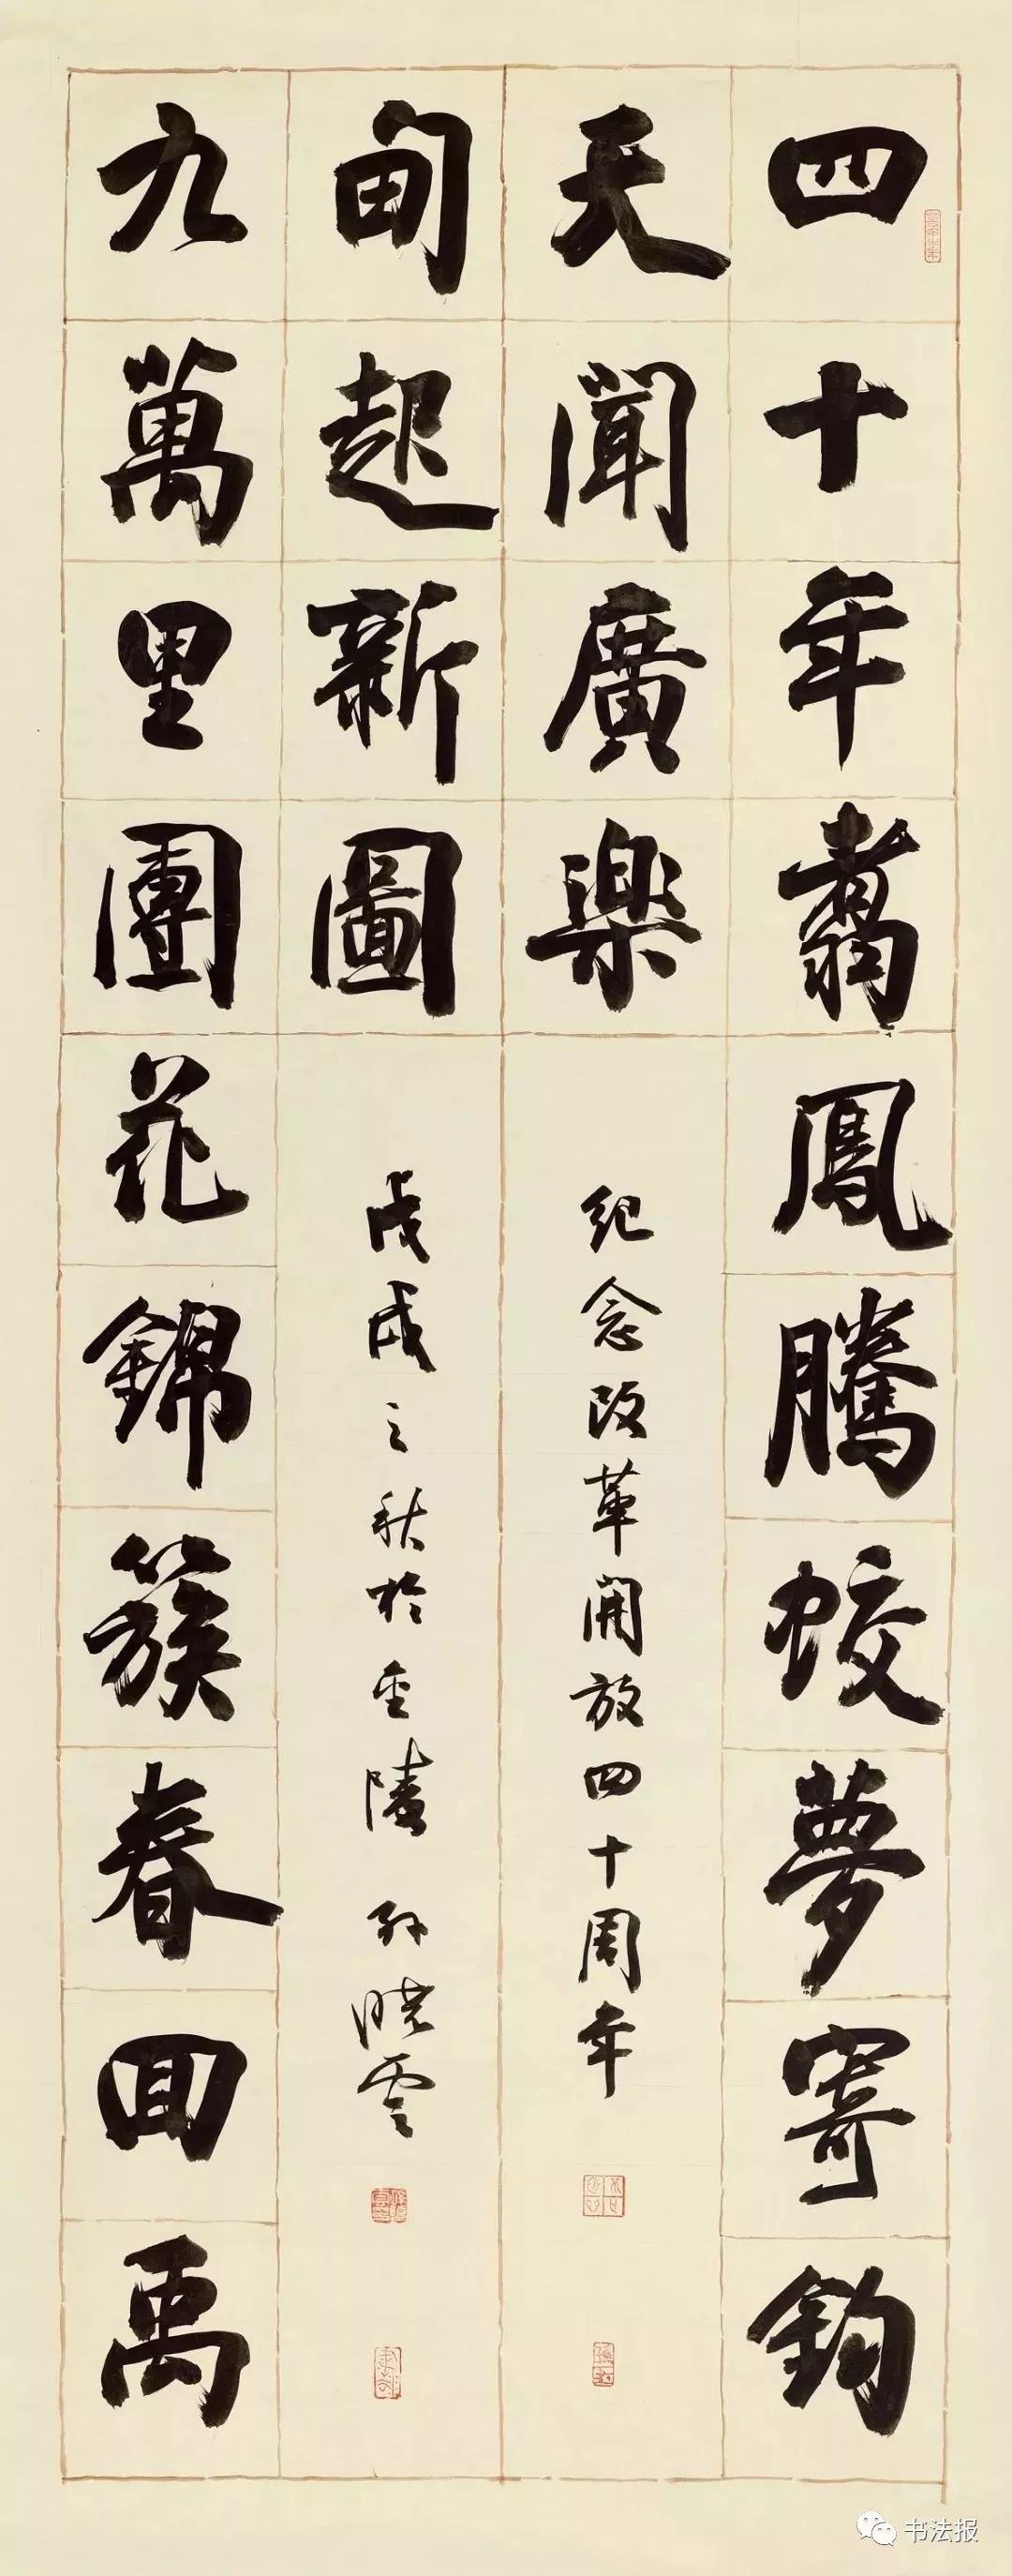 四十年翥鳳騰蛟夢寄鈞
天聞廣樂
紀念改革開放四十周年
九萬里團花錦簇春回禹
甸起新圖
戊戌之秋於金陵 孫曉雲
书法报